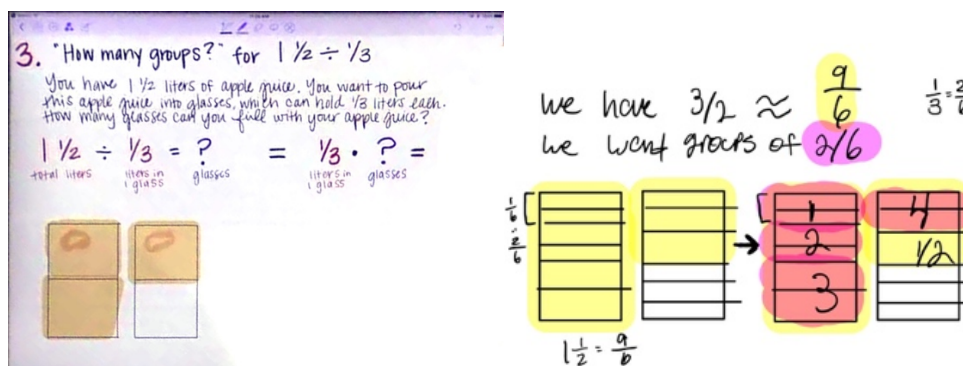 3. "How many groups?" for 1 1/2 ÷ 1/3
You have 1 1/2 liters of apple juice. You want to pour
this apple juice into glasses, which can hold 1/3 liters each.
How many glasses can you fill with your apple juice?
1 1/2 ÷ 1/3 = ? = 1/3 · ? =
total liters liters in 1 glass glasses liters in 1 glass glasses
we have 3/2 ≈ 9/6
we want groups of 2/6
1/3 = 2
1/6
2/6
1 4
2 1/2
3
1 1/2 = 9/6